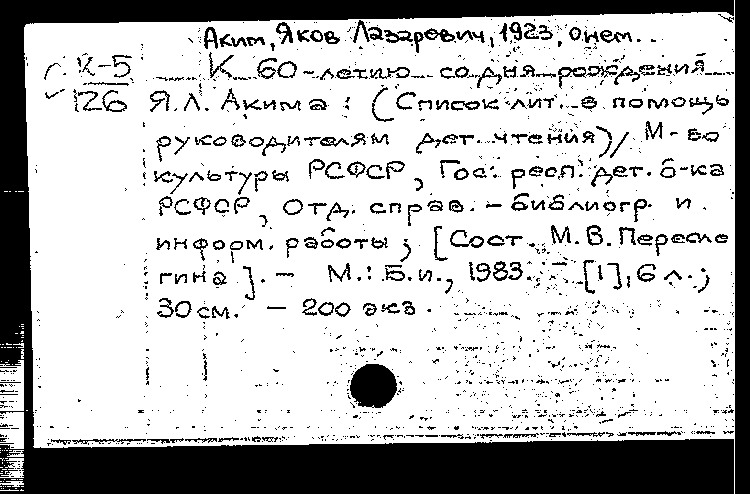 Аким, Яков Лазаревич, 1923, о нем.
К-5 К 60-летию со дня рождения
126 Я.Л. Акима : (Список лит. в помощь
руководителям дет. чтения) / М-во
культуры РСФСР, Гос. респ. дет. б-ка
РСФСР, Отд. справ. - библиогр. и
информ. работы ; [Сост. М.В. Пересле
гина ]. — М.: Б.и., 1983. — [1], 6 л. ;
30 см. — 200 экз.